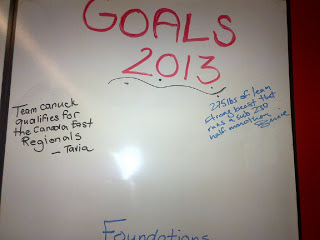 GOALS
2013
Team Canuck
qualifies for
the Canada East
Regionals
- Tavia
275lbs of lean
strong beast that
runs a sub 2:10
half marathon
Foundations